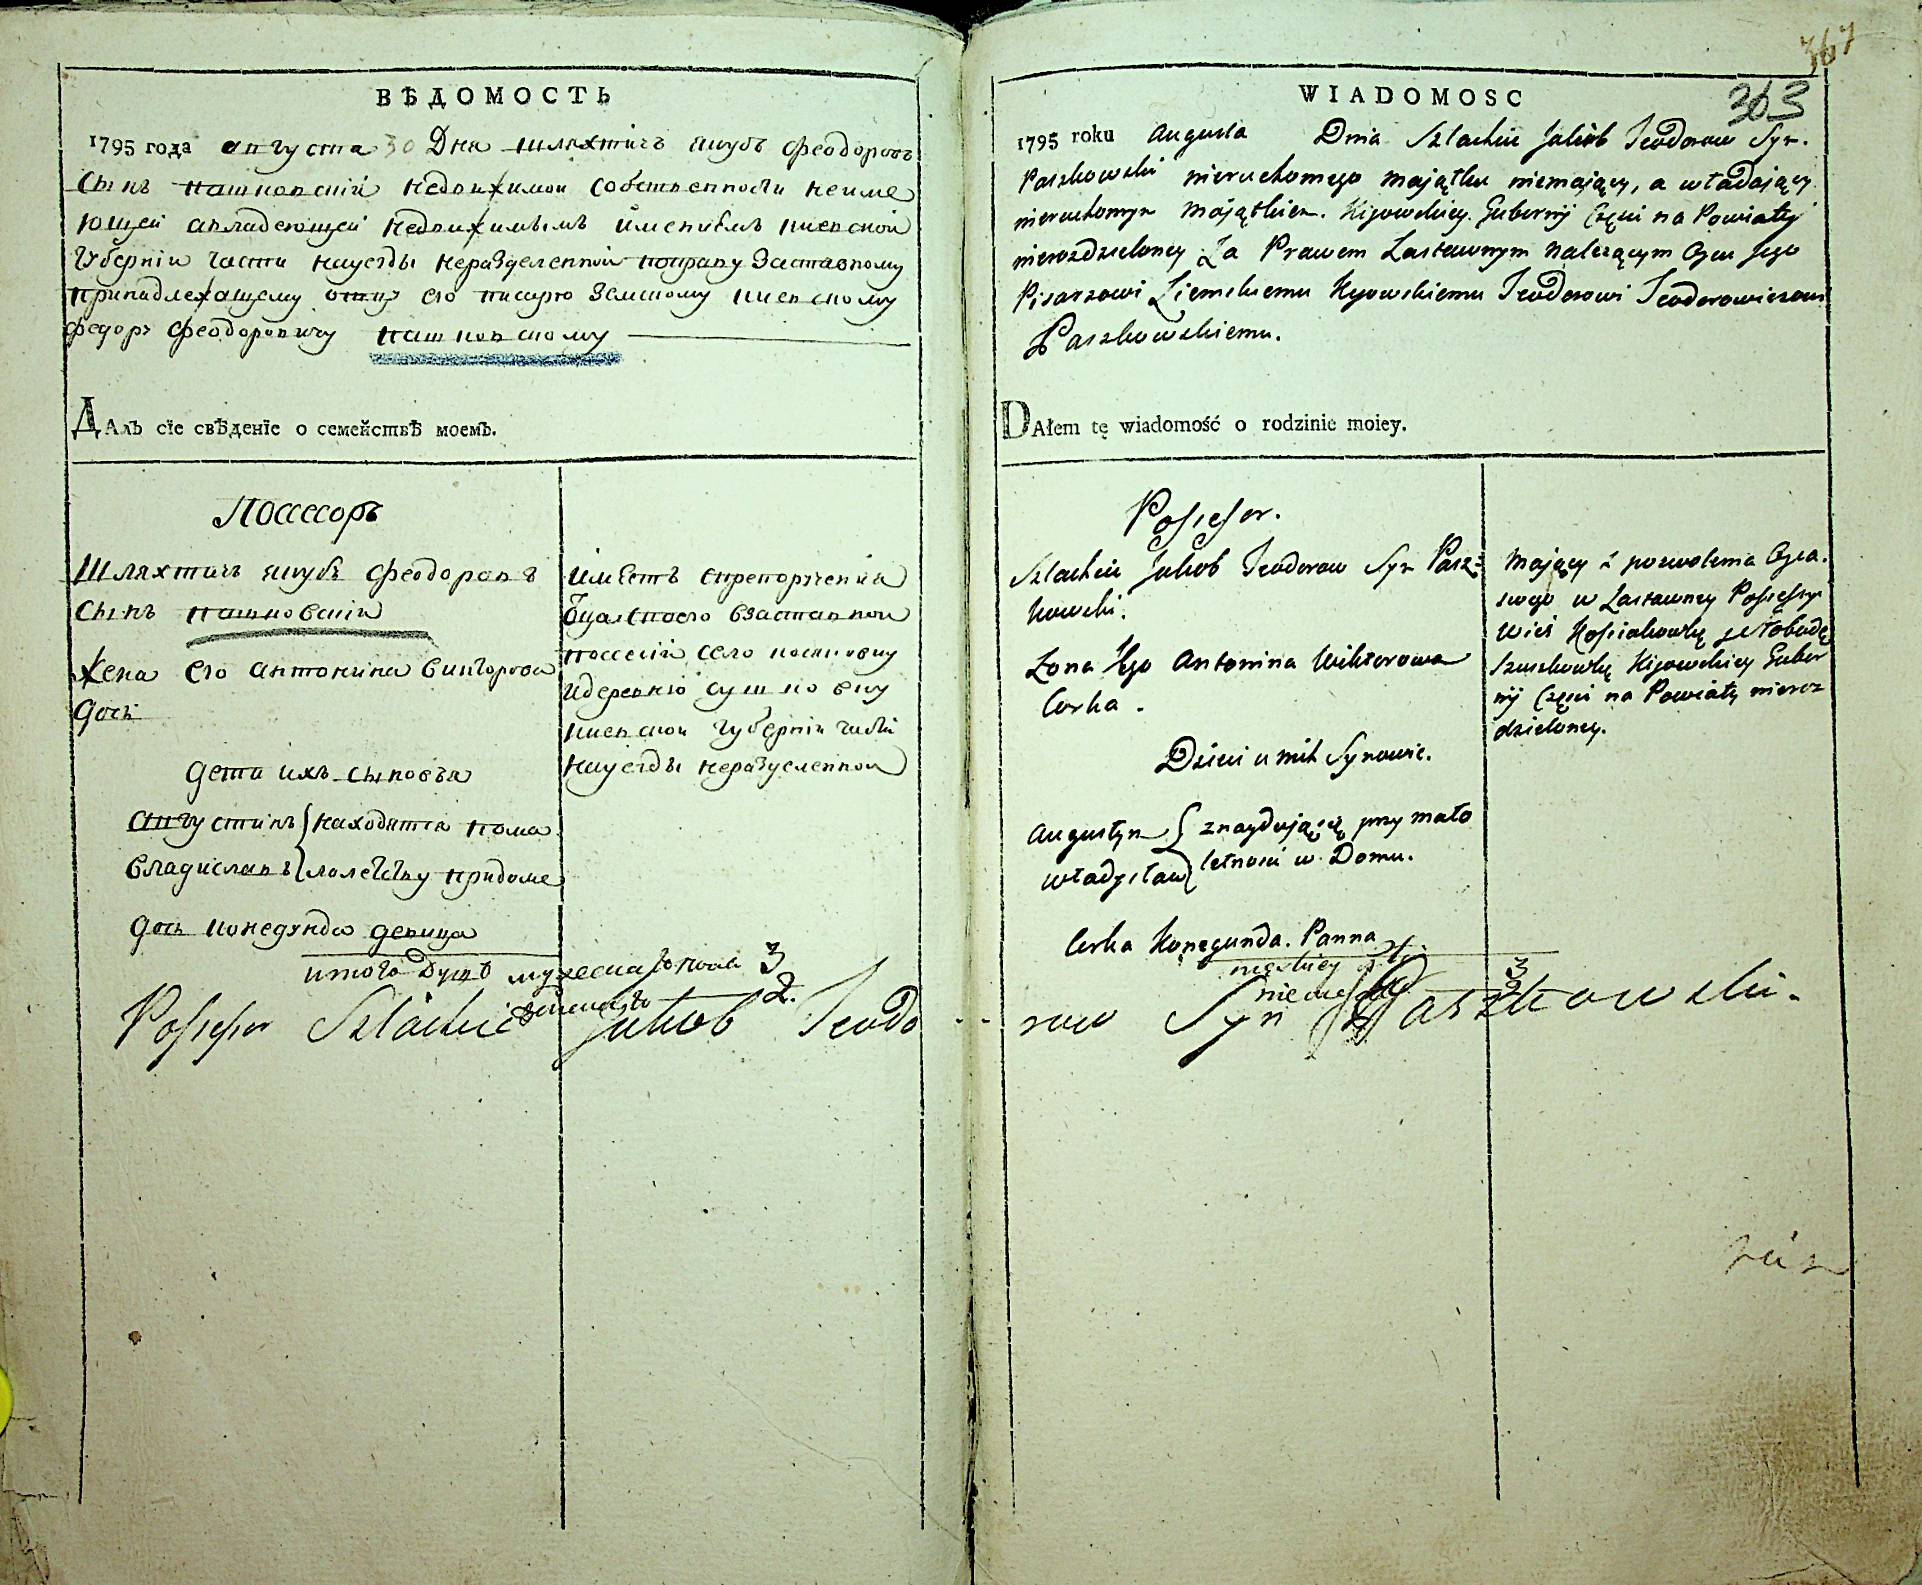 ВѢДОМОСТЬ
1795 года августа 30 Дня шляхтичъ якубъ феодоровъ
сынъ пашковскій недвижимой собственности неиме
ющей авладеющей недвижимымъ имениемъ киевской
губерніи части науезды неразделенной поправу заставному
принадлежащему отцу его писарю земскому киевскому
федору феодоровичу пашковскому
Далъ сїе свѣденїе о семействѣ моемъ.
Поссесоръ
Шляхтичъ якубъ феодоровъ
сынъ пашковскій
жена его антонина викторова
дочь
дети ихъ сыновья
августинъ находятся пома
владиславъ лолетству придоме
дочь конегунда девица
итого душъ мужеска 3
женска 2.
имѣетъ
отца своего взаставной
поссесіи село
идеревню сушковку
киевской губерніи части
науезды неразделенной
Possessor Szlachcic Jakob Teodo
367
363
WIADOMOSC
1795 roku Augusta Dnia Szlachcic Jakób Teodorow Syn.
Paszkowski nieruchomego majątku niemający, a władający
nieruchomym Majątkiem. Kijowskiey Gubernij Części na Powiaty
nierozdzieloney Za Prawem Zastawnym należącym Oycu Jego
Pisarzowi Ziemskiemu Kijowskiemu Teodorowi Teodorowiczowi
Paszkowskiemu.
DAłem tę wiadomość o rodzinie moiey.
Possessor.
Szlachcic Jakob Teodorow Syn Pasz=
kowski.
Zona Jego Antonina Wiktorowa
Corka.
Dzieci u nich Synowie.
Augustyn znayduiący się przy mało
Władysław letności w Domu.
Corka Konegunda. Panna
męskiey 3
3
Maiący z pozwolenia Oyca.
swego w Zastawney Possessyi
Wieś Kossiakowkę y słobodę
Szuszkowkę Kijowskiey Guber
nij Części na Powiaty nieroz
dzieloney.
row Syn Paszkowski.